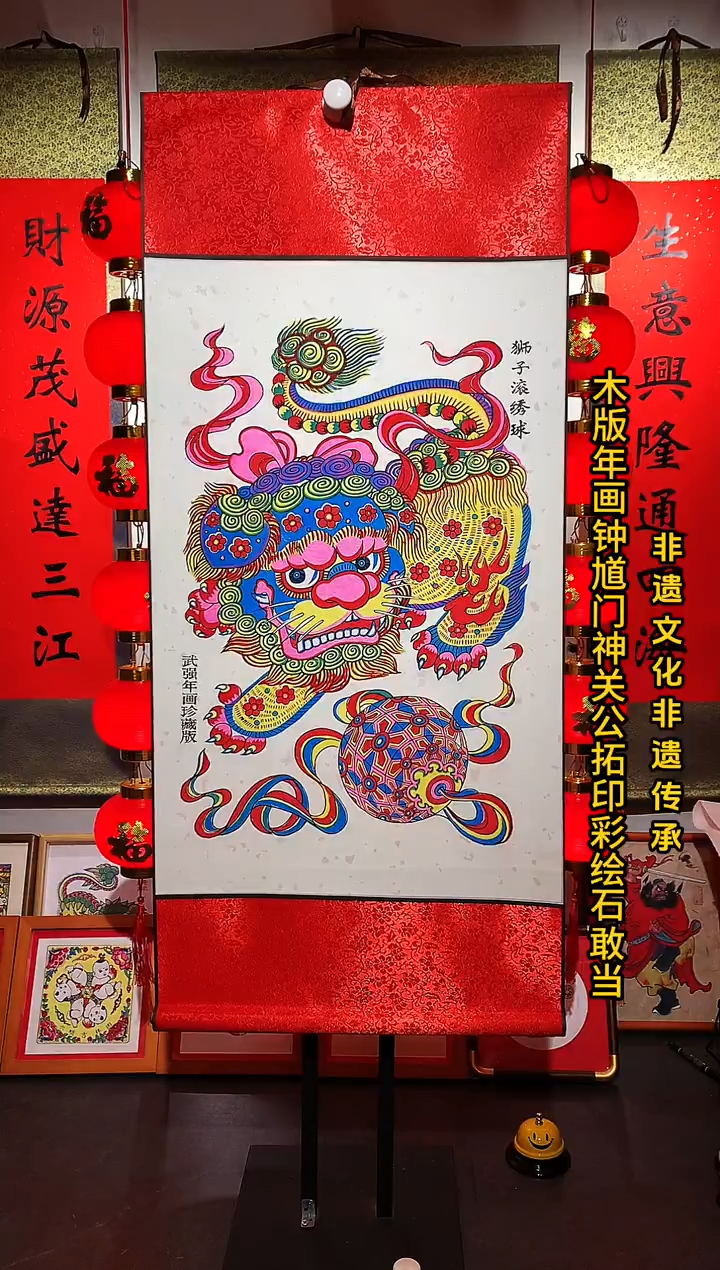 財源茂盛達三江
生意興隆通四海
福
福
福
福
狮子滚绣球
武强年画珍藏版
木版年画钟馗门神关公拓印彩绘石敢当
非遗文化非遗传承